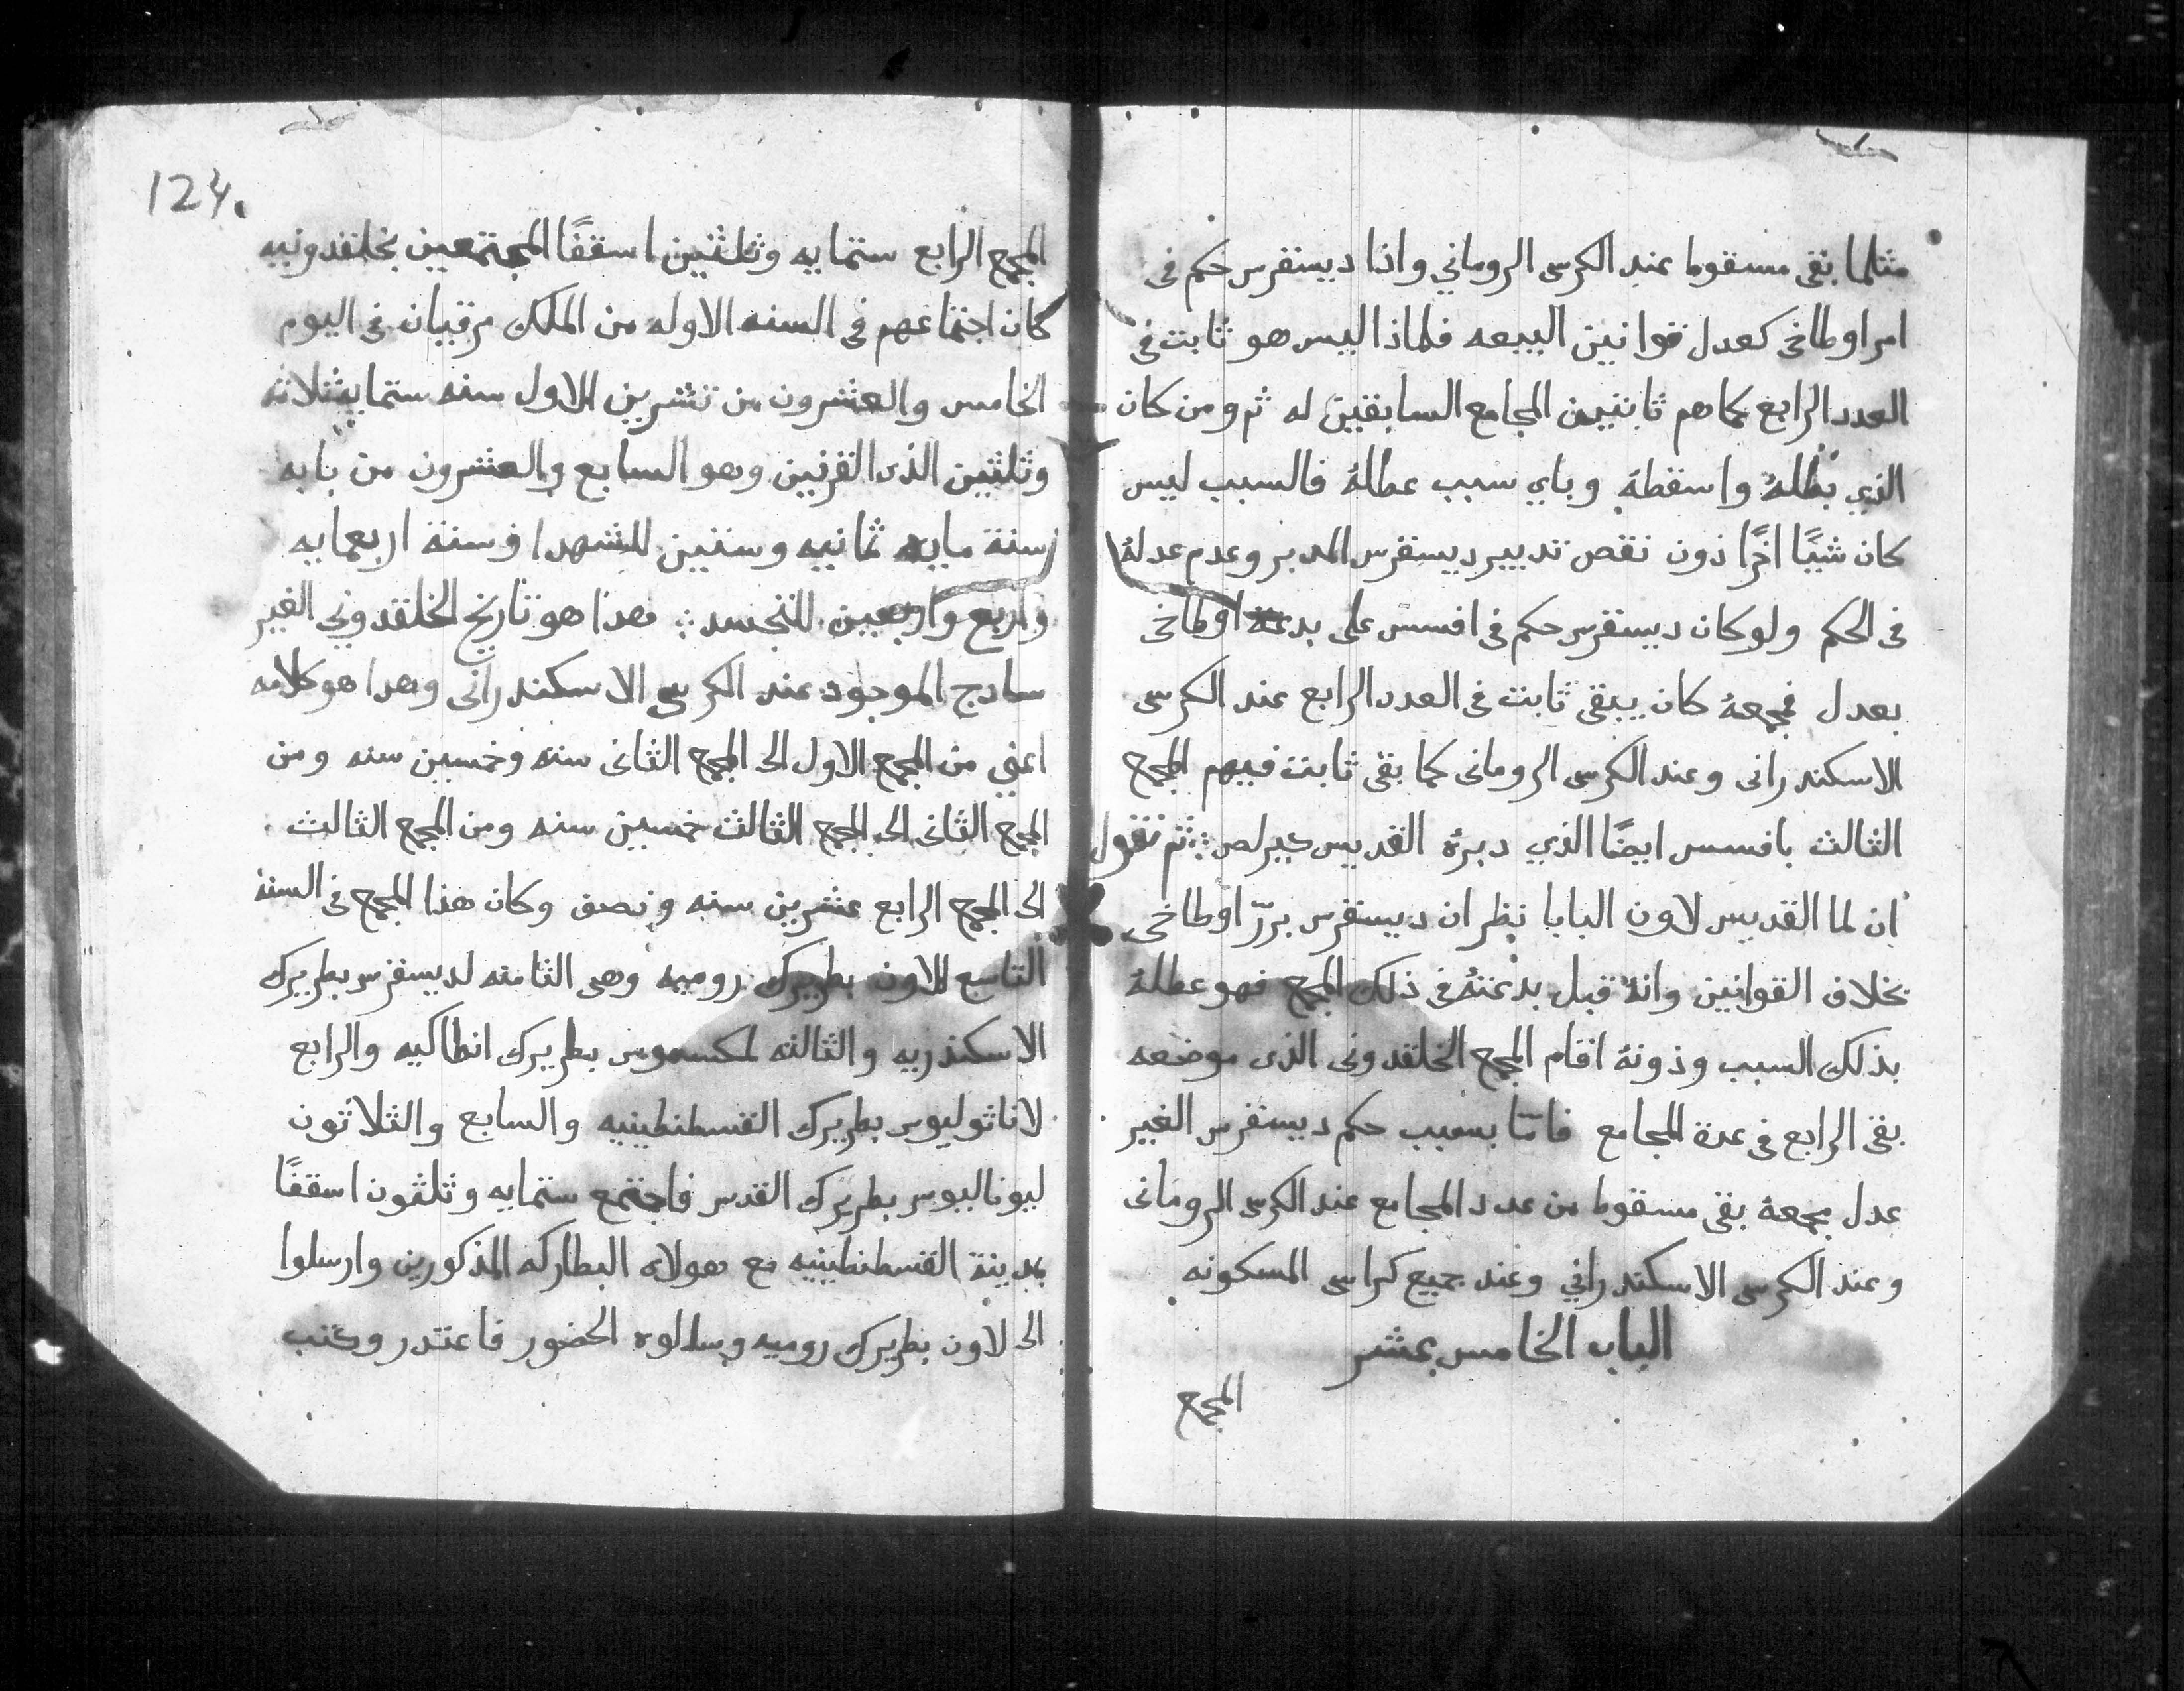 مثلما بقى مسقوط عند الكرسى الروماني واذا ديسقرس حكم فى
امر اوطاخى كعدل قوانين البيعه فلماذا ليس هو ثابت فى
العدد الرابع كما هم ثابتين المجامع السابقين له ثم ومن كان
الذي بطلهُ واسقطهُ وباي سبب عطلهُ فالسبب ليس
كان شيًا اخرًا دون نقص تدبير ديسقرس المدبر وعدم عدلهُ
فى الحكم ولو كان ديسقرس حكم فى افسس على بدعة اوطاخى
بعدل فمجمعهُ كان يبقى ثابت فى العدد الرابع عند الكرسى
الاسكندرانى وعند الكرسى الرومانى كما بقى ثابت فيهم المجمع
الثالث بافسس ايضًا الذي دبرهُ القديس كيرلص ثم نقول
ان لما القديس لاون البابا نظر ان ديسقرس برّر اوطاخى
بخلاف القوانين وانهُ قبل بدعتهُ فى ذلك المجمع فهو عطلهُ
بذلك السبب ودونهُ اقام المجمع الخلقدونى الذى موضعه
بقى الرابع فى عدة المجامع فامّا بسبب حكم ديسقرس الغير
عدل مجمعهُ بقى مسقوط من عدد المجامع عند الكرسى الرومانى
وعند الكرسى الاسكندراني وعند جميع كراسى المسكونه
الباب الخامس عشر
المجمع
124.
المجمع الرابع ستمايه وثلثين اسقفًا المجتمعين بخلقدونيه
كان اجتماعهم فى السنه الاوله من الملك مرقيان فى اليوم
الخامس والعشرون من تشرين الاول سنه ستمايه ثلاثه
وثلثين الذى القرنين وهو السابع والعشرون من بابه
سنة مايه ثمانيه وستين للشهدا وسنة اربعمايه
واربع واربعين للتجسد فهذا هو تاريخ الخلقدوني الغير
سادج الموجود عند الكرسى الاسكندرانى وهدا هو كلامه
اعني من المجمع الاول الى المجمع الثانى سته وخمسين سنه ومن
المجمع الثانى الى المجمع الثالث خمسين سنه ومن المجمع الثالث
الى المجمع الرابع عشرين سنه ونصف وكان هذا المجمع فى السنة
التاسع للاون بطريرك روميه وهى الثامنه لديسقرس بطريرك
الاسكندريه والثالثه لمكسموس بطريرك انطاكيه والرابع
لاناثوليوس بطريرك القسطنطينيه والسابع والثلاثون
ليوناليوس بطريرك القدس فاجتمع ستمايه وثلثون اسقفًا
بمدينة القسطنطينيه مع هولاء البطاركه المذكورين وارسلوا
الى لاون بطريرك روميه وسالوه الحضور فاعتدر وكتب